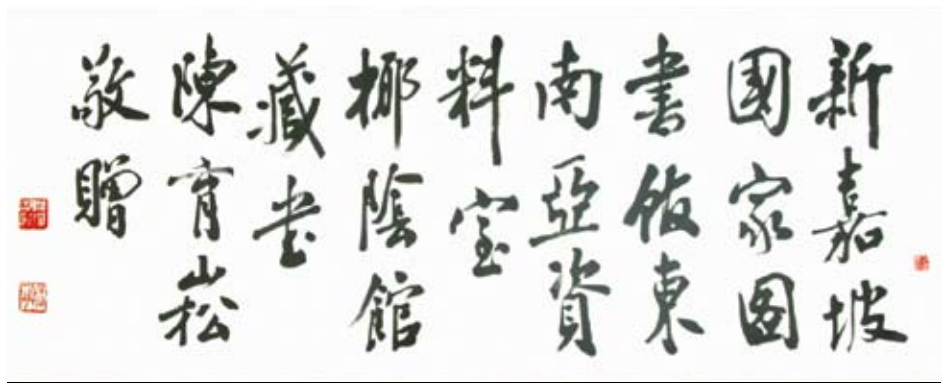 新嘉坡
國家圖
書館東
南亞資
料室
椰陰館
藏書
陳育崧
敬贈